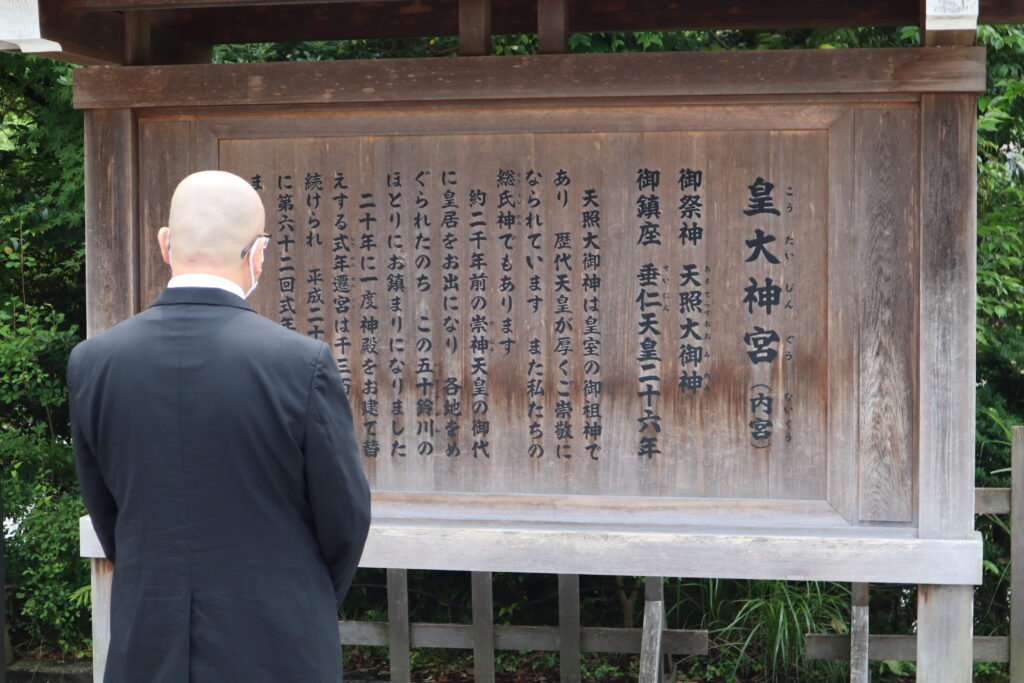 皇大神宮（内宮）
こうたいじんぐう ないくう
御祭神 天照大御神
あまてらすおおみかみ
御鎮座 垂仁天皇二十六年
すいにん
天照大御神は皇室の御祖神で
あり 歴代天皇が厚くご崇敬に
なられています また私たちの
総氏神でもあります
約二千年前の崇神天皇の御代
に皇居をお出になり 各地をめ
ぐられたのち この五十鈴川の
ほとりにお鎮まりになりました
二十年に一度 神殿をお建て替
えする式年遷宮は千三百
続けられ 平成二十
に第六十二回式年
ま